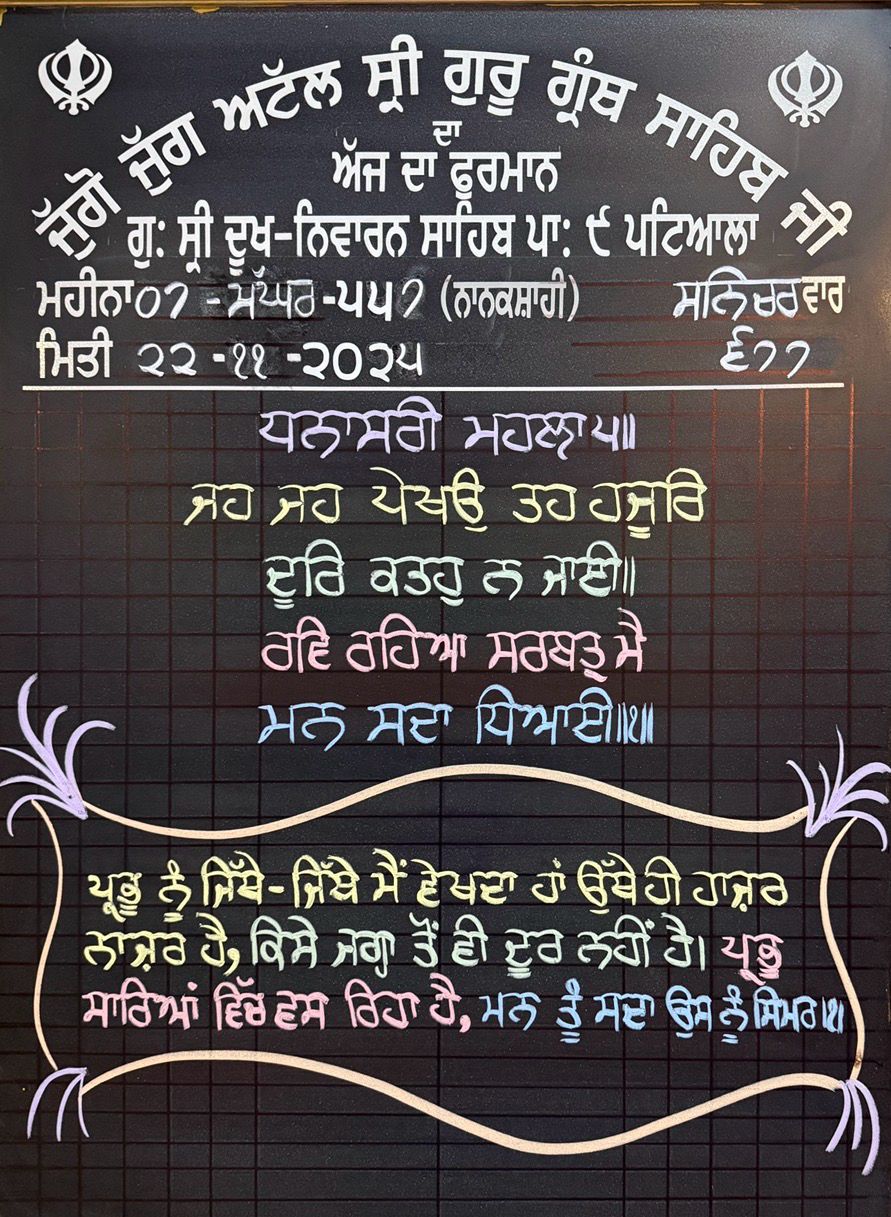 ਜੁੱਗੋ ਜੁੱਗ ਅਟੱਲ ਸ੍ਰੀ ਗੁਰੂ ਗ੍ਰੰਥ ਸਾਹਿਬ ਜੀ
ਦਾ
ਅੱਜ ਦਾ ਫੁਰਮਾਨ
ਗੁ: ਸ੍ਰੀ ਦੂਖ-ਨਿਵਾਰਨ ਸਾਹਿਬ ਪਾ: ੯ ਪਟਿਆਲਾ
ਮਹੀਨਾ ੦੭ - ਮੱਘਰ - ੫੫੭ (ਨਾਨਕਸ਼ਾਹੀ) ਸਨਿਚਰ ਵਾਰ
ਮਿਤੀ ੨੨ - ੧੧ - ੨੦੨੫ ੬੭੭
ਧਨਾਸਰੀ ਮਹਲਾ ੫॥
ਜਹ ਜਹ ਪੇਖਉ ਤਹ ਹਜੂਰਿ
ਦੂਰਿ ਕਤਹੁ ਨ ਜਾਈ॥
ਰਵਿ ਰਹਿਆ ਸਰਬਤ੍ਰ ਮੈ
ਮਨ ਸਦਾ ਧਿਆਈ॥੧॥
ਪ੍ਰਭੂ ਨੂੰ ਜਿੱਥੇ-ਜਿੱਥੇ ਮੈਂ ਵੇਖਦਾ ਹਾਂ ਉੱਥੇ ਹੀ ਹਾਜ਼ਰ
ਨਾਜ਼ਰ ਹੈ, ਕਿਸੇ ਜਗ੍ਹਾ ਤੋਂ ਵੀ ਦੂਰ ਨਹੀਂ ਹੈ। ਪ੍ਰਭੂ
ਸਾਰਿਆਂ ਵਿੱਚ ਵਸ ਰਿਹਾ ਹੈ, ਮਨ ਤੂੰ ਸਦਾ ਉਸ ਨੂੰ ਸਿਮਰ।੧।